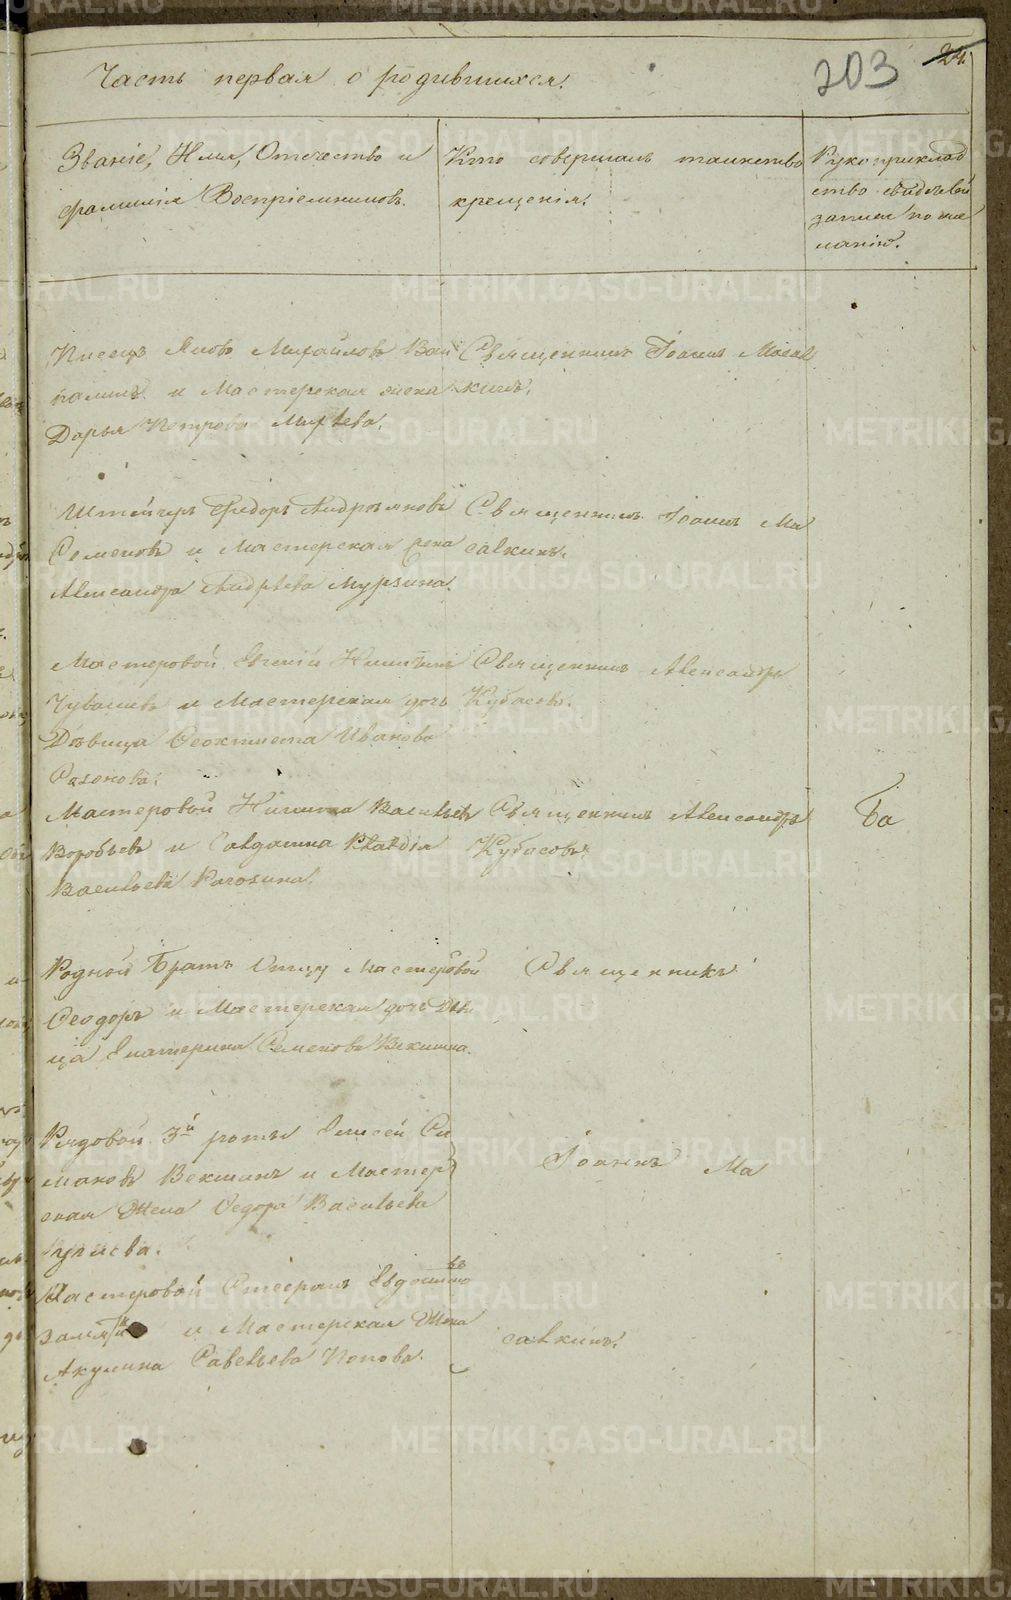 Часть первая о родившихся.
203
24.
Званіе, Имя, Отчество и
фамилія Воспріемниковъ.
Кто совершалъ таинство
крещенія.
Рукоприклад
ство свидѣтелей
записи по же
ланію.
Писецъ Яковъ Михайловъ
и Мастерская жена
Дарья Петрова
Священникъ Іоаннъ Масал
кинъ.
Штейгеръ Ѳедоръ Андреяновъ
Семеновъ и Мастерская жена
Александра Андреева Мурзина.
Священникъ Іоаннъ Ма
салкинъ.
Мастеровой Евгеній Никитинъ
Чувашевъ и Мастерская дочь
Дѣвица Ѳеоктиста Иванова
Священникъ Александръ
Кубасовъ.
Мастеровой Никита Васильевъ
Воробьевъ и Солдатка Клавдія
Васильева Рагозина.
Священникъ Александръ
Кубасовъ.
Ба
Родной Братъ Отцу Мастеровой
Ѳеодоръ и Мастерская дочь Дѣви
ца Екатерина Семенова Векшина.
Священникъ
Рядовой 3й роты Елисей Си
маковъ Векшинъ и Мастер
ская Жена Ѳедора Васильева
Іоаннъ Ма
Мастеровой Стефанъ Евдокимовъ
и Мастерская Жена
Акулина Савельева Попова.
салкинъ.
METRIKI.GASO-URAL.RU